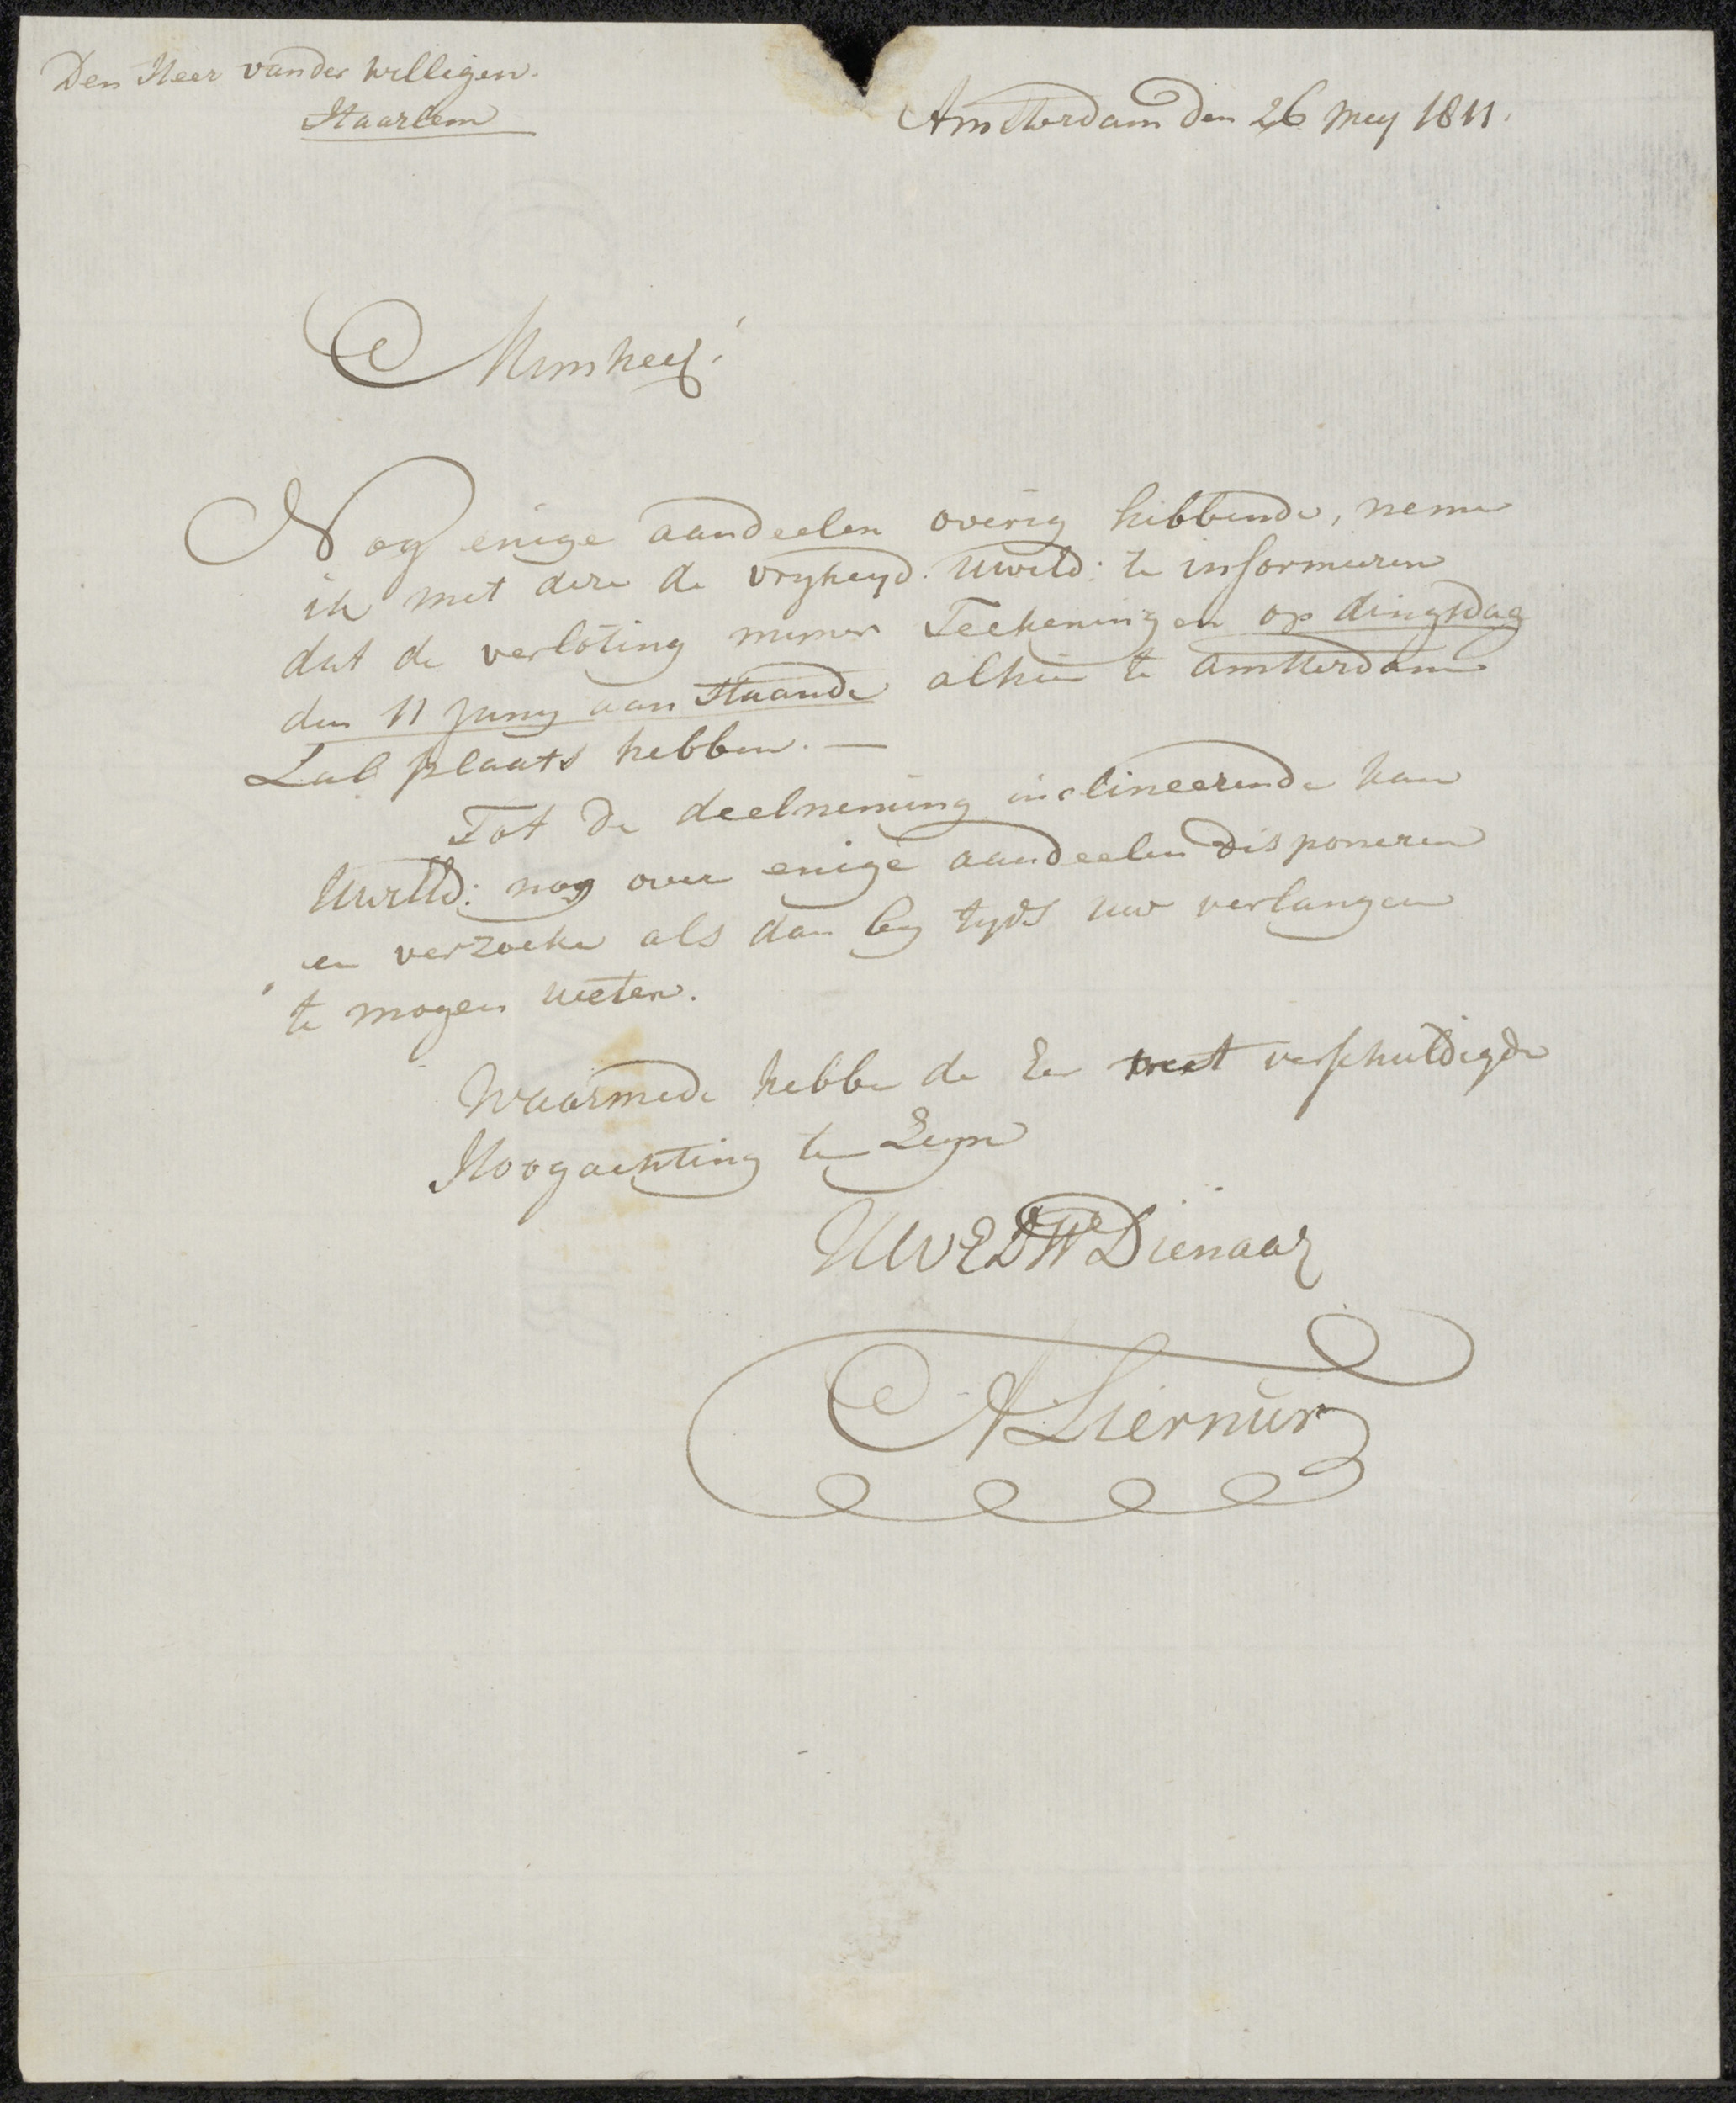 Den Heer vander Willigen.
Haarlem
Amsterdam den 26 Mey 1811.
Mynheer!
Nog enige aandeelen overig hebbende, neme
ik met dese de vryheyd. UwEd: te informeeren
dat de verloting myner Teekeningen op dingsdag
den 11 Juny aanstaande alhier te Amsterdam
Zal plaats hebben. —
Tot de deelneming inclineerende kan
UwEd: nog over enige aandeelen disponeren
en verzoeke als dan by tyds uw verlangen
te mogen weten.
Waarmede hebbe de Eer met verschuldigde
Hoogachting te Zyn
UWEDWDienaar
A Liernur